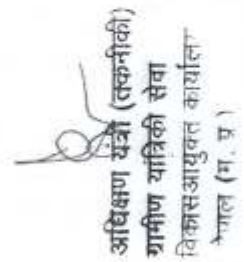 अधिक्षण यंत्री (तकनीकी)
ग्रामीण यांत्रिकी सेवा
विकासआयुक्त कार्यालय
(म. प्र)